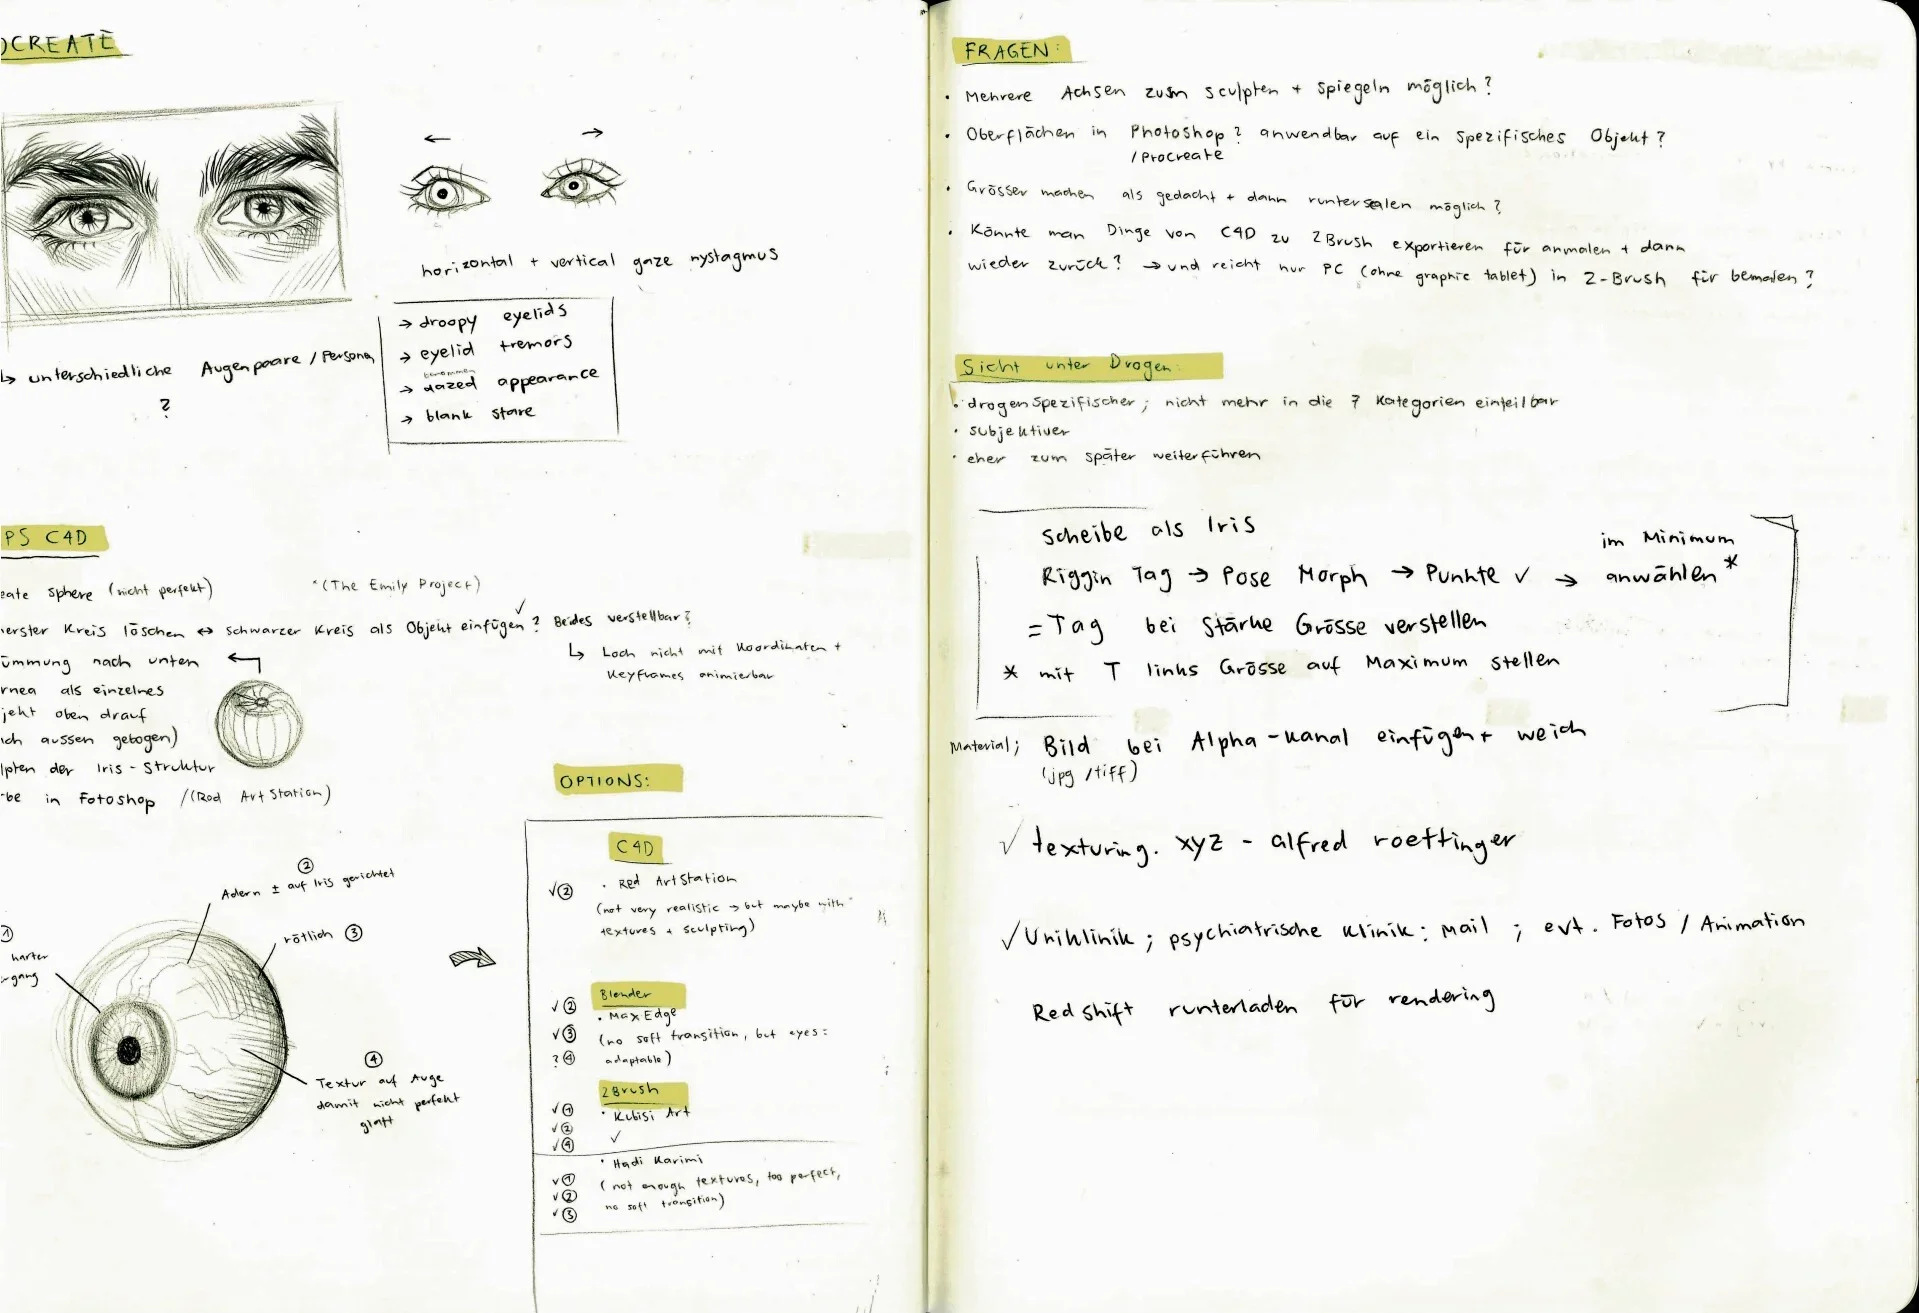 OCREATE
← →
horizontal + vertical gaze nystagmus
→ droopy eyelids
→ eyelid tremors
benommen
→ dazed appearance
→ blank stare
↳ unterschiedliche Augenpaare / Person
?
PS C4D
eate sphere (nicht perfekt) *(The Emily Project)
nerster Kreis löschen ↔ schwarzer Kreis als Objekt einfügen ✓ ? Beides verstellbar?
↳ Loch nicht mit Koordinaten +
Keyframes animierbar
ümmung nach unten ←
rnea als einzelnes
jekt oben drauf
ch aussen gebogen)
lpten der Iris-Struktur
be in Fotoshop / (Rod ArtStation)
②
Adern ± auf Iris gerichtet
rötlich ③
①
harter
rgang
④
Textur auf Auge
damit nicht perfekt
glatt
OPTIONS:
C4D
✓② · Red ArtStation
(not very realistic → but maybe with
textures + sculpting)
Blender
✓② · Max Edge
✓③ (no soft transition, but eyes:
?④ adaptable)
ZBrush
✓① · Kubisi Art
✓② ✓
✓④
· Hadi Karimi
✓① (not enough textures, too perfect,
✓② no soft transition)
✓③
FRAGEN:
· Mehrere Achsen zum sculpten + spiegeln möglich?
· Oberflächen in Photoshop? anwendbar auf ein spezifisches Objekt?
/Procreate
· Grösser machen als gedacht + dann runterscalen möglich?
· Könnte man Dinge von C4D zu ZBrush exportieren für anmalen + dann
wieder zurück? → und reicht nur PC (ohne graphic tablet) in Z-Brush für bemalen?
Sicht unter Drogen:
· drogenspezifischer; nicht mehr in die 7 Kategorien einteilbar
· subjektiver
· eher zum später weiterführen
Scheibe als Iris
Riggin Tag → Pose Morph → Punkte ✓ → im Minimum
anwählen *
= Tag bei Stärke Grösse verstellen
* mit T links Grösse auf Maximum stellen
Material; Bild bei Alpha-Kanal einfügen + weich
(jpg /tiff)
✓ texturing. xyz - alfred roettinger
✓ Uniklinik ; psychiatrische Klinik: Mail ; evt. Fotos / Animation
Redshift runterladen für rendering